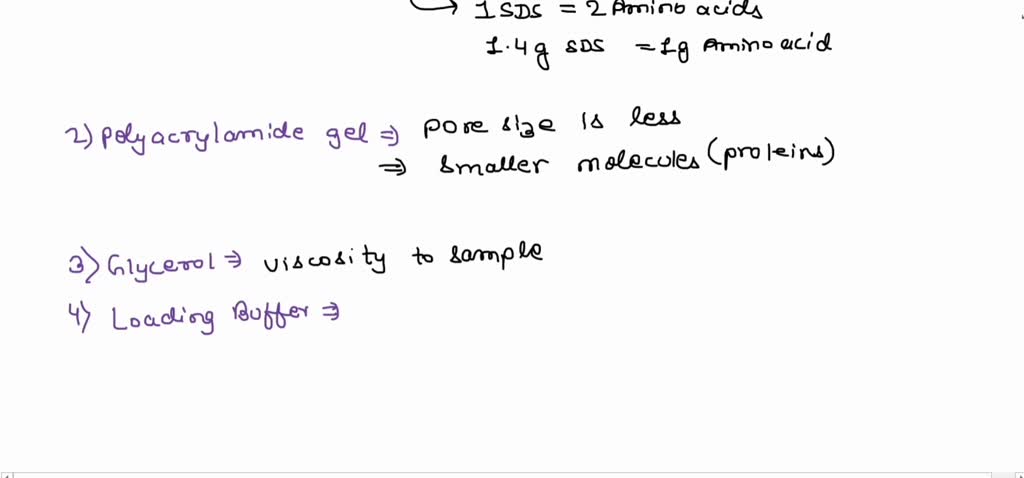 1 SDS = 2 Amino acids
1.4g SDS = 1g Amino acid
2) Polyacrylamide gel ⇒ pore size is less
⇒ smaller molecules (proteins)
3) Glycerol ⇒ viscosity to sample
4) Loading Buffer ⇒